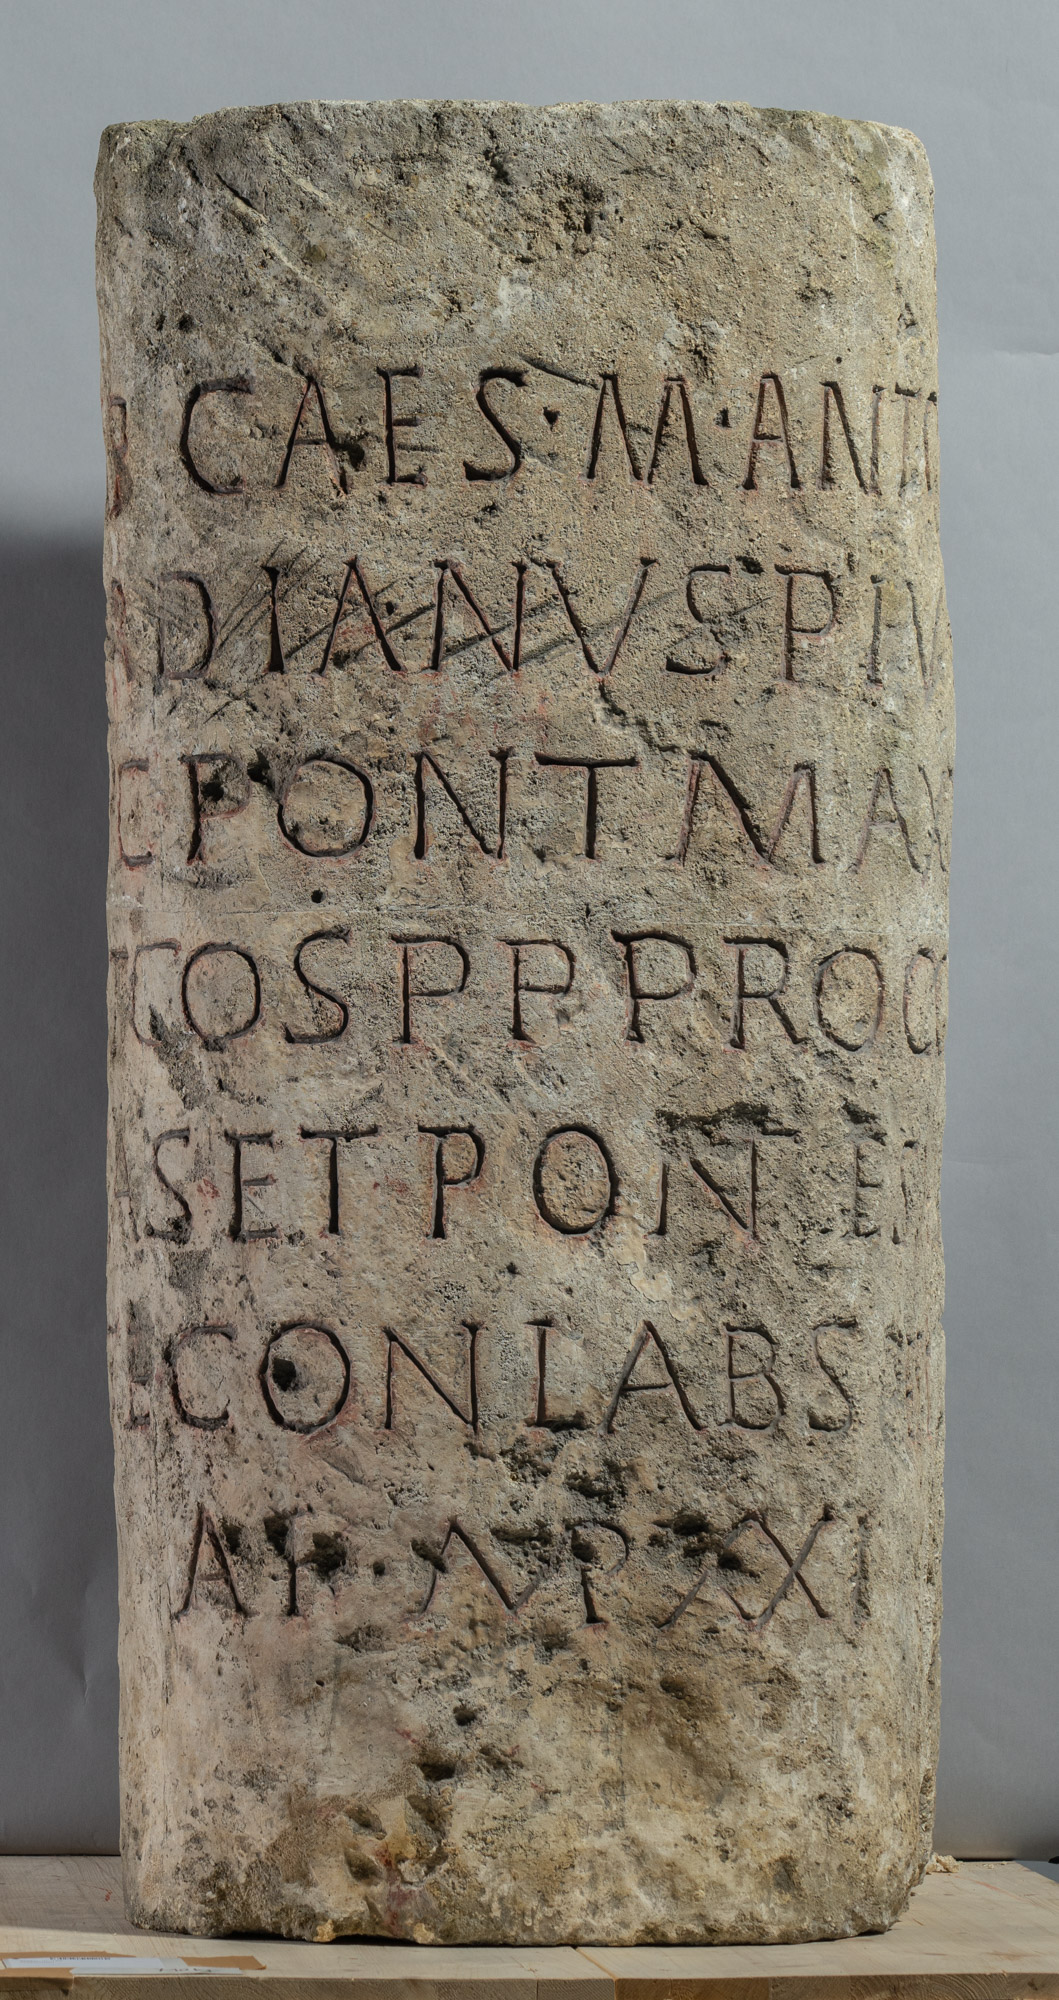 R CAES·M·ANTO
RDIANVS PIV
C PONT MAX
T COS P P PROCO
AS ET PONTES ET
CONLABS
A K·AVP XXI